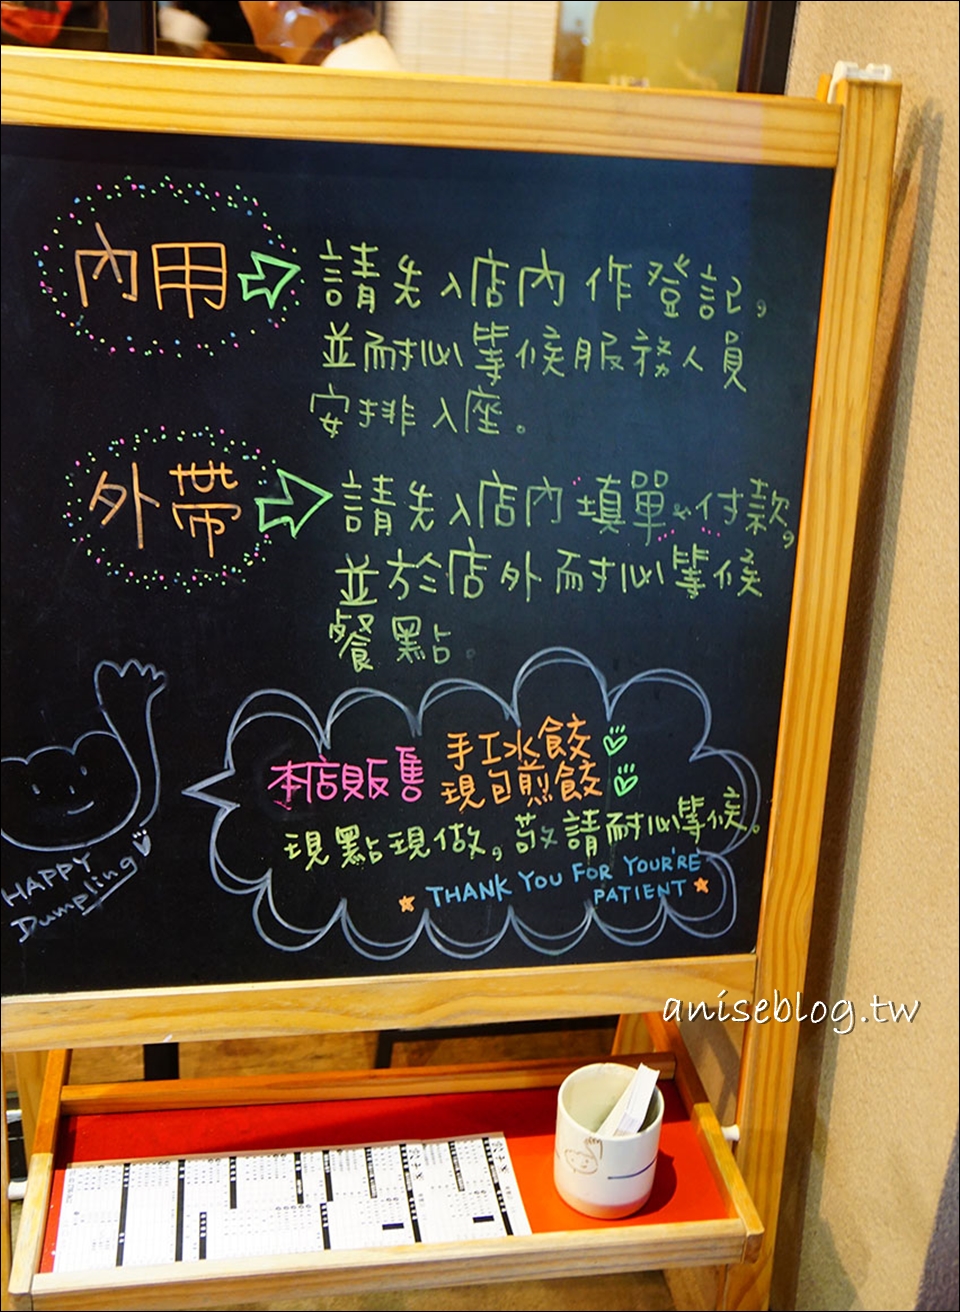 內用
請先入店內作登記,
並耐心等候服務人員
安排入座。
外帶
請先入店內填單&付款,
並於店外耐心等候
餐點。
本店販售
手工水餃
現包煎餃
現點現做,敬請耐心等候。
THANK YOU FOR YOUR'RE
PATIENT
HAPPY
Dumpling
aniseblog.tw